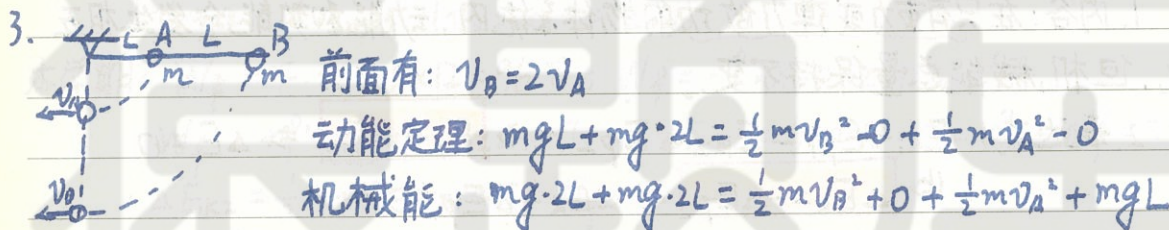 3.
L A L B
m m
前面有: v_B=2v_A
v_A
动能定理: mgL+mg·2L=½mv_B²-0+½mv_A²-0
v_B
机械能: mg·2L+mg·2L=½mv_B²+0+½mv_A²+mgL